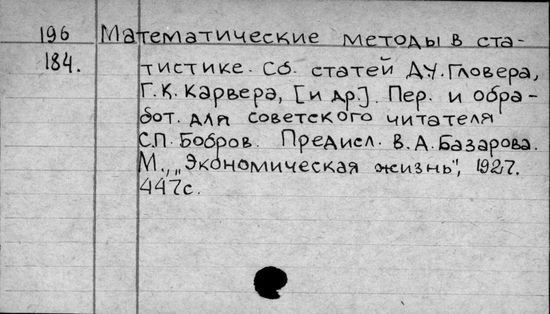 196 Математические методы в ста-
184. тистике. Сб. статей Д.У. Гловера,
Г. К. Карвера, [и др.]. Пер. и обра-
бот. для советского читателя
С.П. Бобров. Предисл. В. А. Базарова.
М., „Экономическая жизнь", 1927.
447с.